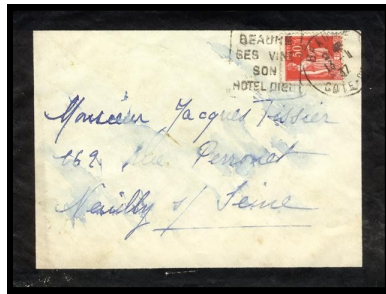 BEAUNE
SES VINS
SON
HOTEL DIEU
50
COTE
Monsieur Jacques Tissier
162 rue Perronet
Neuilly s/ Seine